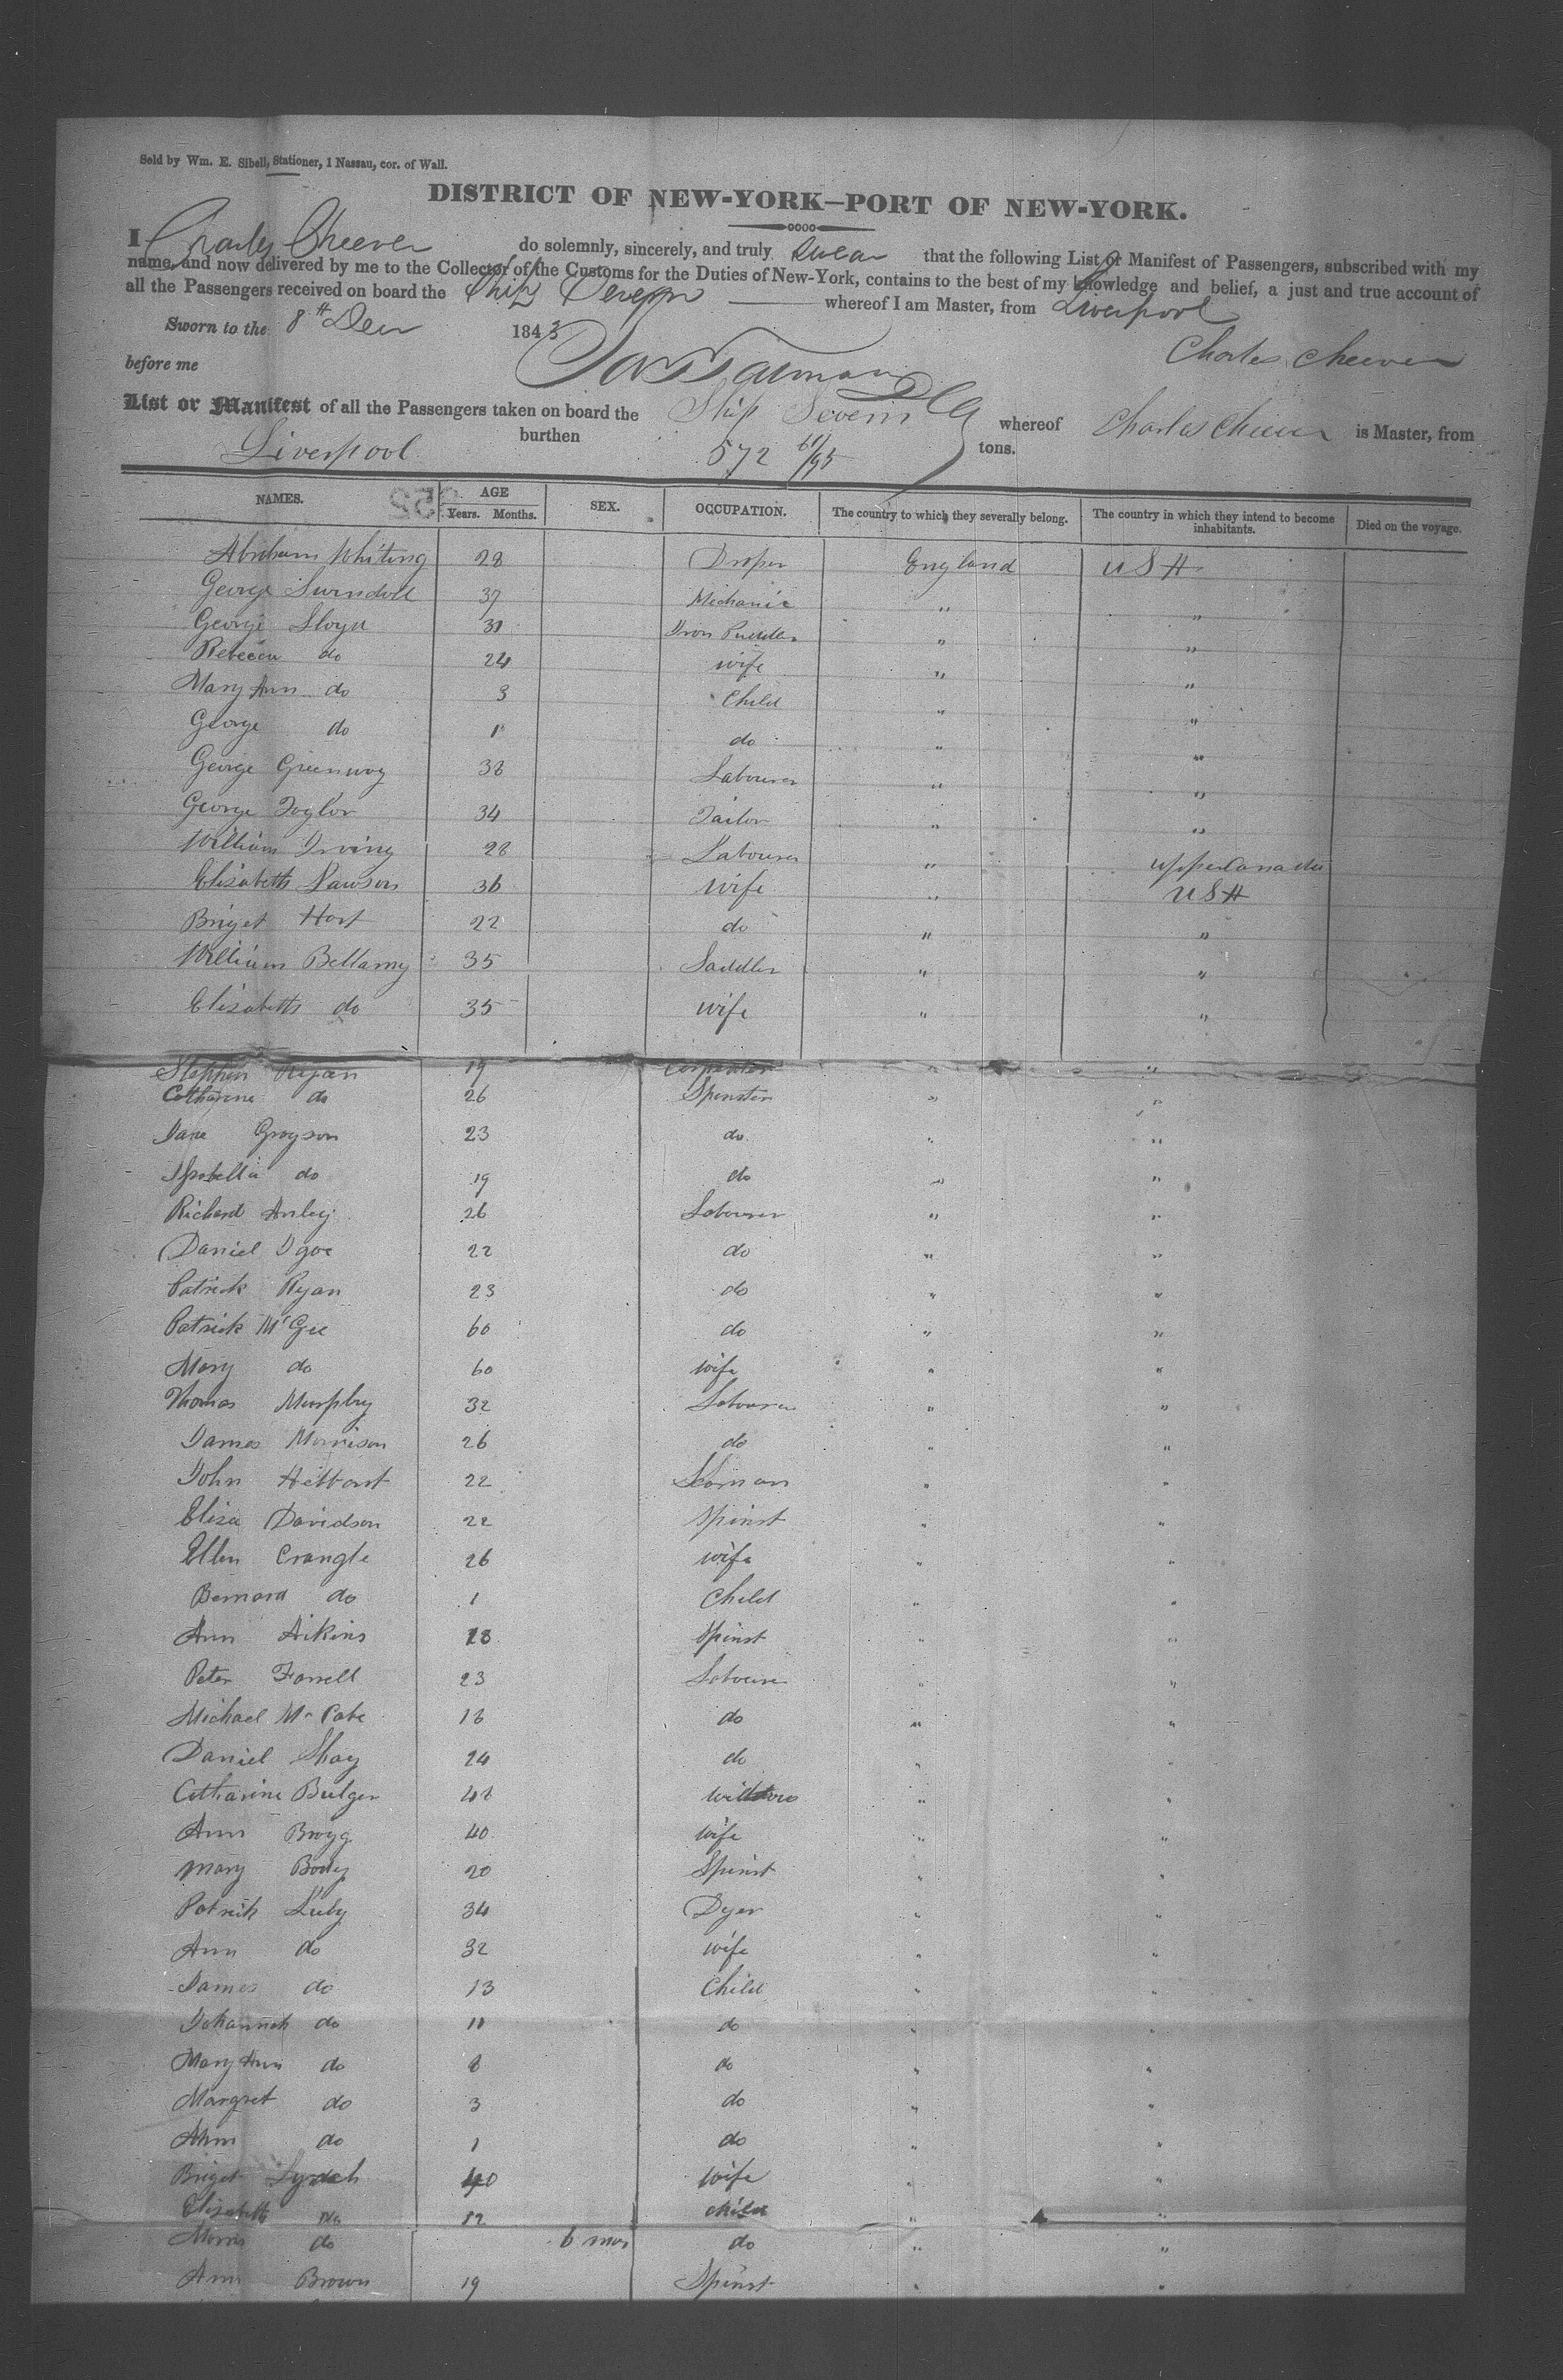 Sold by Wm. E. Sibell, Stationer, 1 Nassau, cor. of Wall.
DISTRICT OF NEW-YORK—PORT OF NEW-YORK.
I Charles Cheever do solemnly, sincerely, and truly swear that the following List or Manifest of Passengers, subscribed with my
name, and now delivered by me to the Collector of the Customs for the Duties of New-York, contains to the best of my knowledge and belief, a just and true account of
all the Passengers received on board the Ship whereof I am Master, from Liverpool
Sworn to the 8th Decr 1843
Charles Cheever
before me
List or Manifest of all the Passengers taken on board the Ship whereof Charles Cheever is Master, from
Liverpool burthen 572 61/95 tons.
NAMES. AGE Years. Months. SEX. OCCUPATION. The country to which they severally belong. The country in which they intend to become inhabitants. Died on the voyage.
Abraham Whiting 28 Draper England USA
George Swindell 37 Mechanic " "
George Lloyd 31 Iron Puddler " "
Rebecca do 24 wife " "
Mary Ann do 3 Child " "
George do 1 do " "
George Greenway 38 Labourer " "
George Taylor 34 Tailor " "
William Irving 28 Labourer " Upper Canada
Elizabeth Lawson 36 wife " USA
Briget Hart 22 do " "
William Bellamy 35 Saddler " "
Elizabeth do 35 wife " "
Stephen Ryan 19 Carpenter " "
Catharine do 26 Spinster " "
Jane Grayson 23 do " "
Isabella do 19 do " "
Richard 26 Labourer " "
Daniel Igoe 22 do " "
Patrick Ryan 23 do " "
Patrick McGee 60 do " "
Mary do 60 wife " "
Thomas Murphy 32 Labourer " "
James Morrison 26 do " "
John 22 Seaman " "
Eliza Davidson 22 Spinst " "
Ellen Crangle 26 wife " "
Bernard do 1 Child " "
Ann Aikins 18 Spinst " "
Peter Farrell 23 Labourer " "
Michael McCabe 18 do " "
Daniel Shay 24 do " "
Catharine Bulger 48 widow " "
Ann 40 wife " "
Mary 20 Spinst " "
Patrick Luby 34 Dyer " "
Ann do 32 wife " "
James do 13 Child " "
Johannah do 11 do " "
Mary Ann do 8 do " "
Margret do 3 do " "
Ann do 1 do " "
Briget Lynch 40 wife " "
Elizabeth do 12 child " "
Morris do 6 mos do " "
Ann Brown 19 Spinst " "